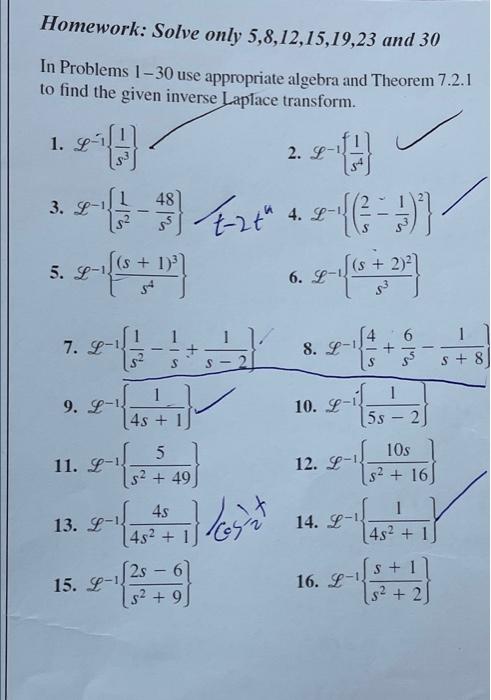 Homework: Solve only 5,8,12,15,19,23 and 30
In Problems 1–30 use appropriate algebra and Theorem 7.2.1
to find the given inverse Laplace transform.
1. ℒ⁻¹{1/s³}
2. ℒ⁻¹{1/s⁴}
3. ℒ⁻¹{1/s² − 48/s⁵} t-2t⁴
4. ℒ⁻¹{(2/s − 1/s³)²}
5. ℒ⁻¹{(s + 1)³/s⁴}
6. ℒ⁻¹{(s + 2)²/s³}
7. ℒ⁻¹{1/s² − 1/s + 1/(s − 2)}
8. ℒ⁻¹{4/s + 6/s⁵ − 1/(s + 8)}
9. ℒ⁻¹{1/(4s + 1)}
10. ℒ⁻¹{1/(5s − 2)}
11. ℒ⁻¹{5/(s² + 49)}
12. ℒ⁻¹{10s/(s² + 16)}
13. ℒ⁻¹{4s/(4s² + 1)}
14. ℒ⁻¹{1/(4s² + 1)}
15. ℒ⁻¹{(2s − 6)/(s² + 9)}
16. ℒ⁻¹{(s + 1)/(s² + 2)}